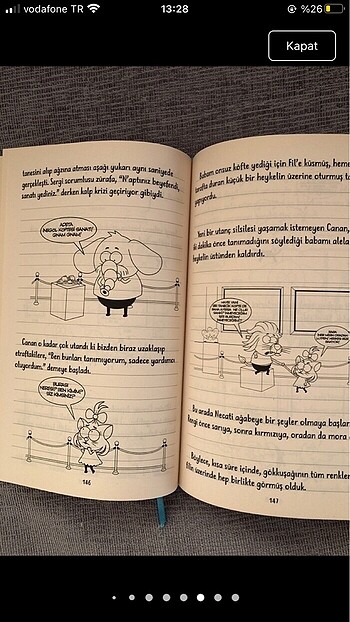 vodafone TR
13:28
%26
Kapat
tanesini alıp ağzına atması aşağı yukarı aynı saniyede
gerçekleşti. Sergi sorumlusu zürafa, "N'aptınız beyefendi,
sanatı yediniz." derken kalp krizi geçiriyor gibiydi.
Canan o kadar çok utandı ki bizden biraz uzaklaşıp
etraftakilere, "Ben bunları tanımıyorum, sadece yardımcı
oluyordum." demeye başladı.
BURASI
NERESİ? BEN KİMİM?
SİZ KİMSİNİZ?
146
Babam onsuz köfte yediği için Fil'e küsmüş, heme
tarafta duran küçük bir heykelin üzerine oturmuş
yapıyordu.
Yeni bir utanç silsilesi yaşamak istemeyen Canan,
iki dakika önce tanımadığını söylediği babamı
heykelin üstünden kaldırdı.
Bu arada Necati ağabeye bir şeyler olmaya başla
Rengi önce sarıya, sonra kırmızıya, oradan da mora
Böylece, kısa süre içinde, gökkuşağının tüm renkler
filin üzerinde hep birlikte görmüş olduk.
147